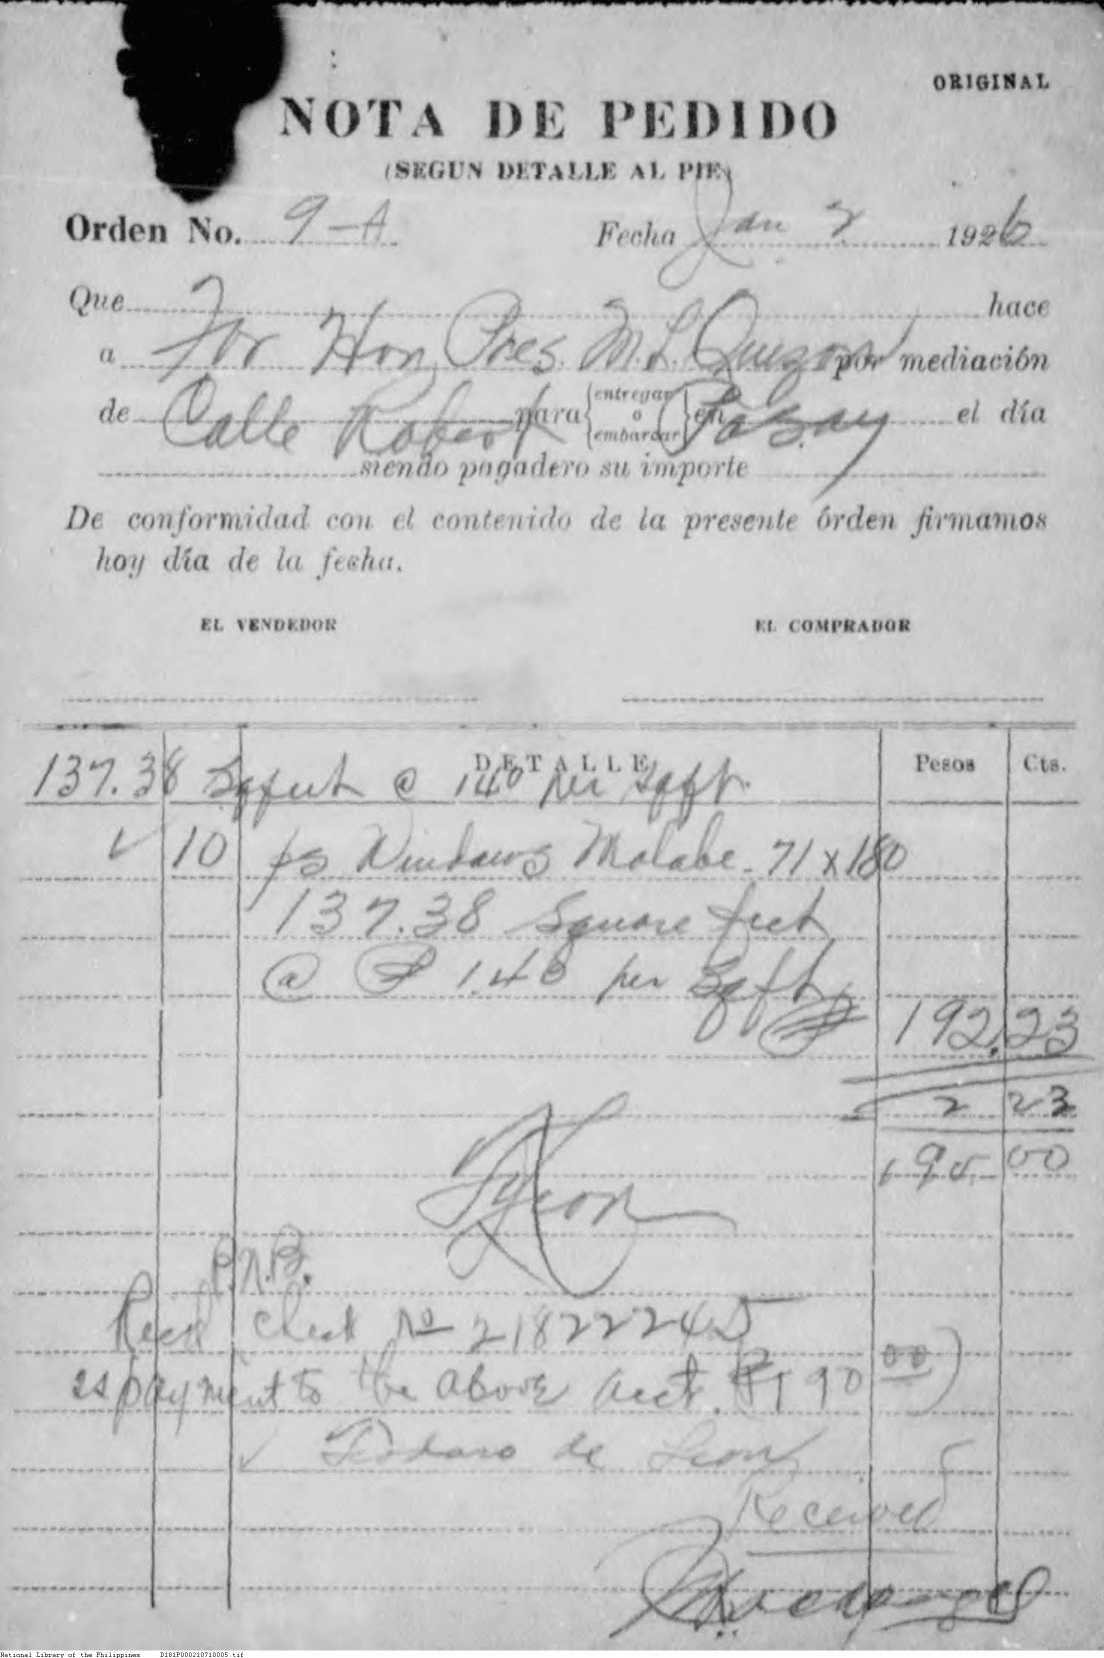 ORIGINAL
NOTA DE PEDIDO
(SEGUN DETALLE AL PIE)
Orden No. 9-A Fecha Jan 2 1926
Que hace
a For Hon. Pres. M. L. Quezon por mediación
de Calle Robert para (entregar o embarcar) en Pasay el día
siendo pagadero su importe
De conformidad con el contenido de la presente órden firmamos
hoy día de la fecha.
EL VENDEDOR EL COMPRADOR
DETALLE Pesos Cts.
137.38 Sqfeet @ 140 per Sqft.
✓ 10 ps Windows Malabe - 71 x 180
137.38 Square feet
@ ₱ 1.40 per Sqft
₱ 192.23
2 23
190 00
TdLeon
P.N.B.
Recd check No 21822245
as payment to the above acct. ₱190 00)
✓ Teodoro de Leon
Received
National Library of the Philippines D181P000210710005.tif